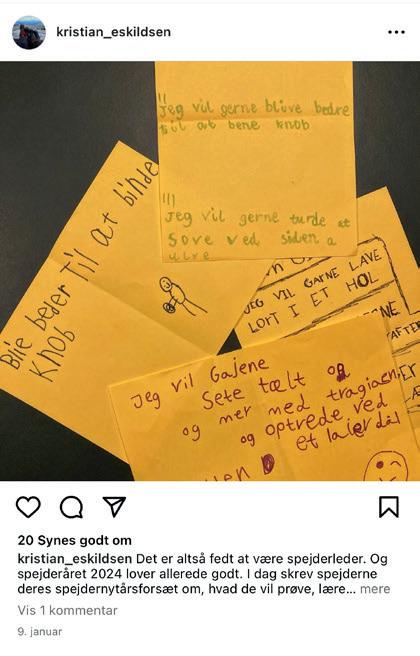 kristian_eskildsen
Jeg vil gerne blive bedre
til at bene knob
Jeg vil gerne turde at
Sove ved siden a
ulve
Blie beder til at binde
Knob
JEG VIL GARNE LAVE
LORT I ET HOL
NE
AFTER
ER
Jeg vil Gajene
Sete tælt og
og mer med tragiaen
og optrede ved
et laierdål
20 Synes godt om
kristian_eskildsen Det er altså fedt at være spejderleder. Og
spejderåret 2024 lover allerede godt. I dag skrev spejderne
deres spejdernytårsforsæt om, hvad de vil prøve, lære... mere
Vis 1 kommentar
9. januar